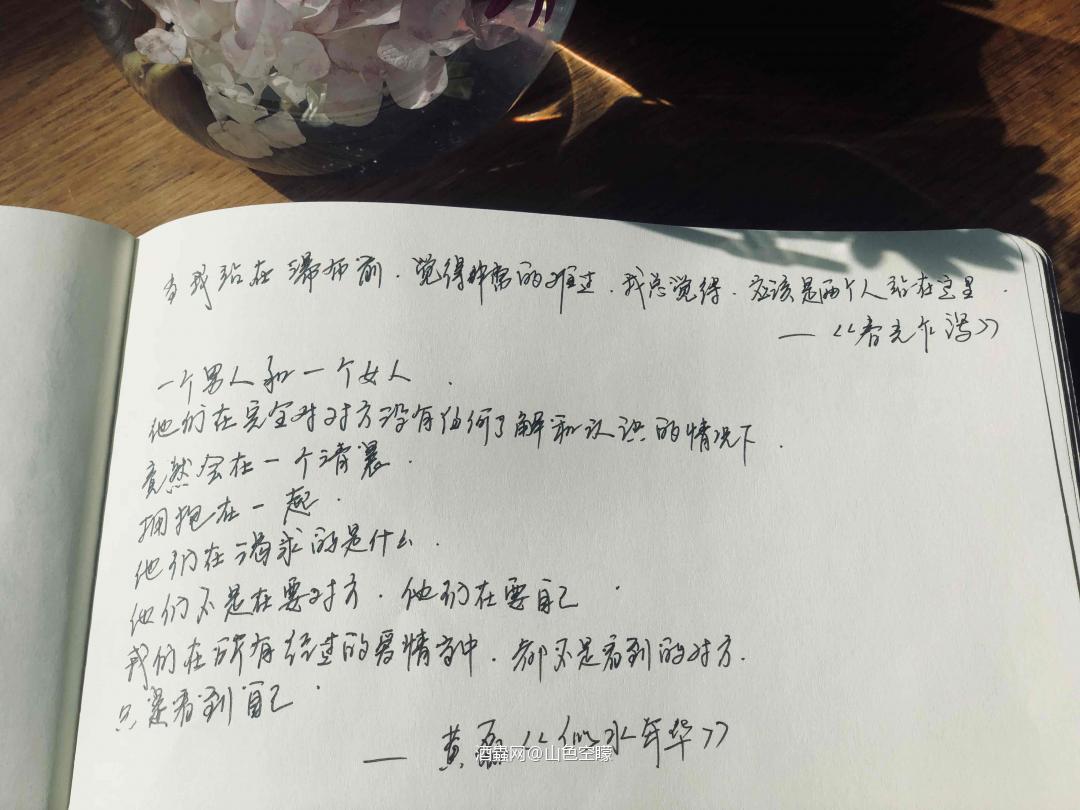 当我站在瀑布前.觉得非常的难过.我总觉得.应该是两个人站在这里.
—《春光乍泄》
一个男人和一个女人.
他们在完全对对方没有任何了解和认识的情况下.
竟然会在一个清晨.
拥抱在一起.
他们在渴求的是什么.
他们不是在要对方.他们在要自己.
我们在所有经过的爱情当中.都不是看到的对方.
只是看到自己.
—黄磊《似水年华》
酒蟲网@山色空曚